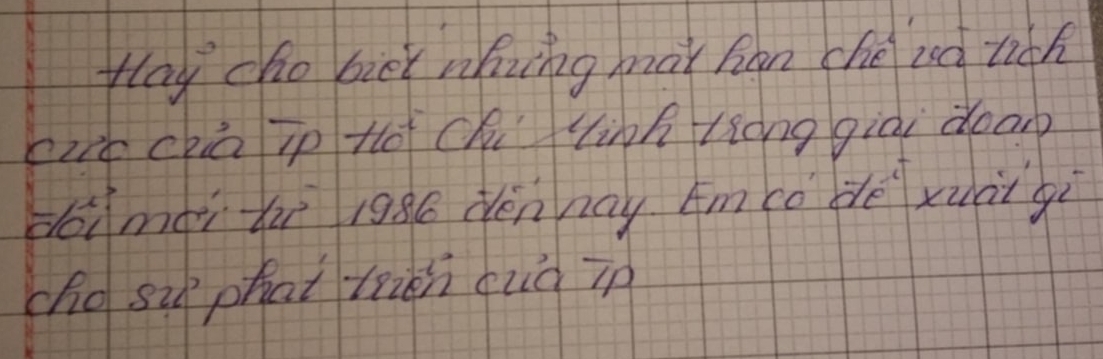 Hãy cho biết những mặt hạn chế và tích
cực của TP Hồ Chí Minh trong giai đoạn
đổi mới từ 1986 đến nay. Em có đề xuất gì
cho sự phát triển của TP